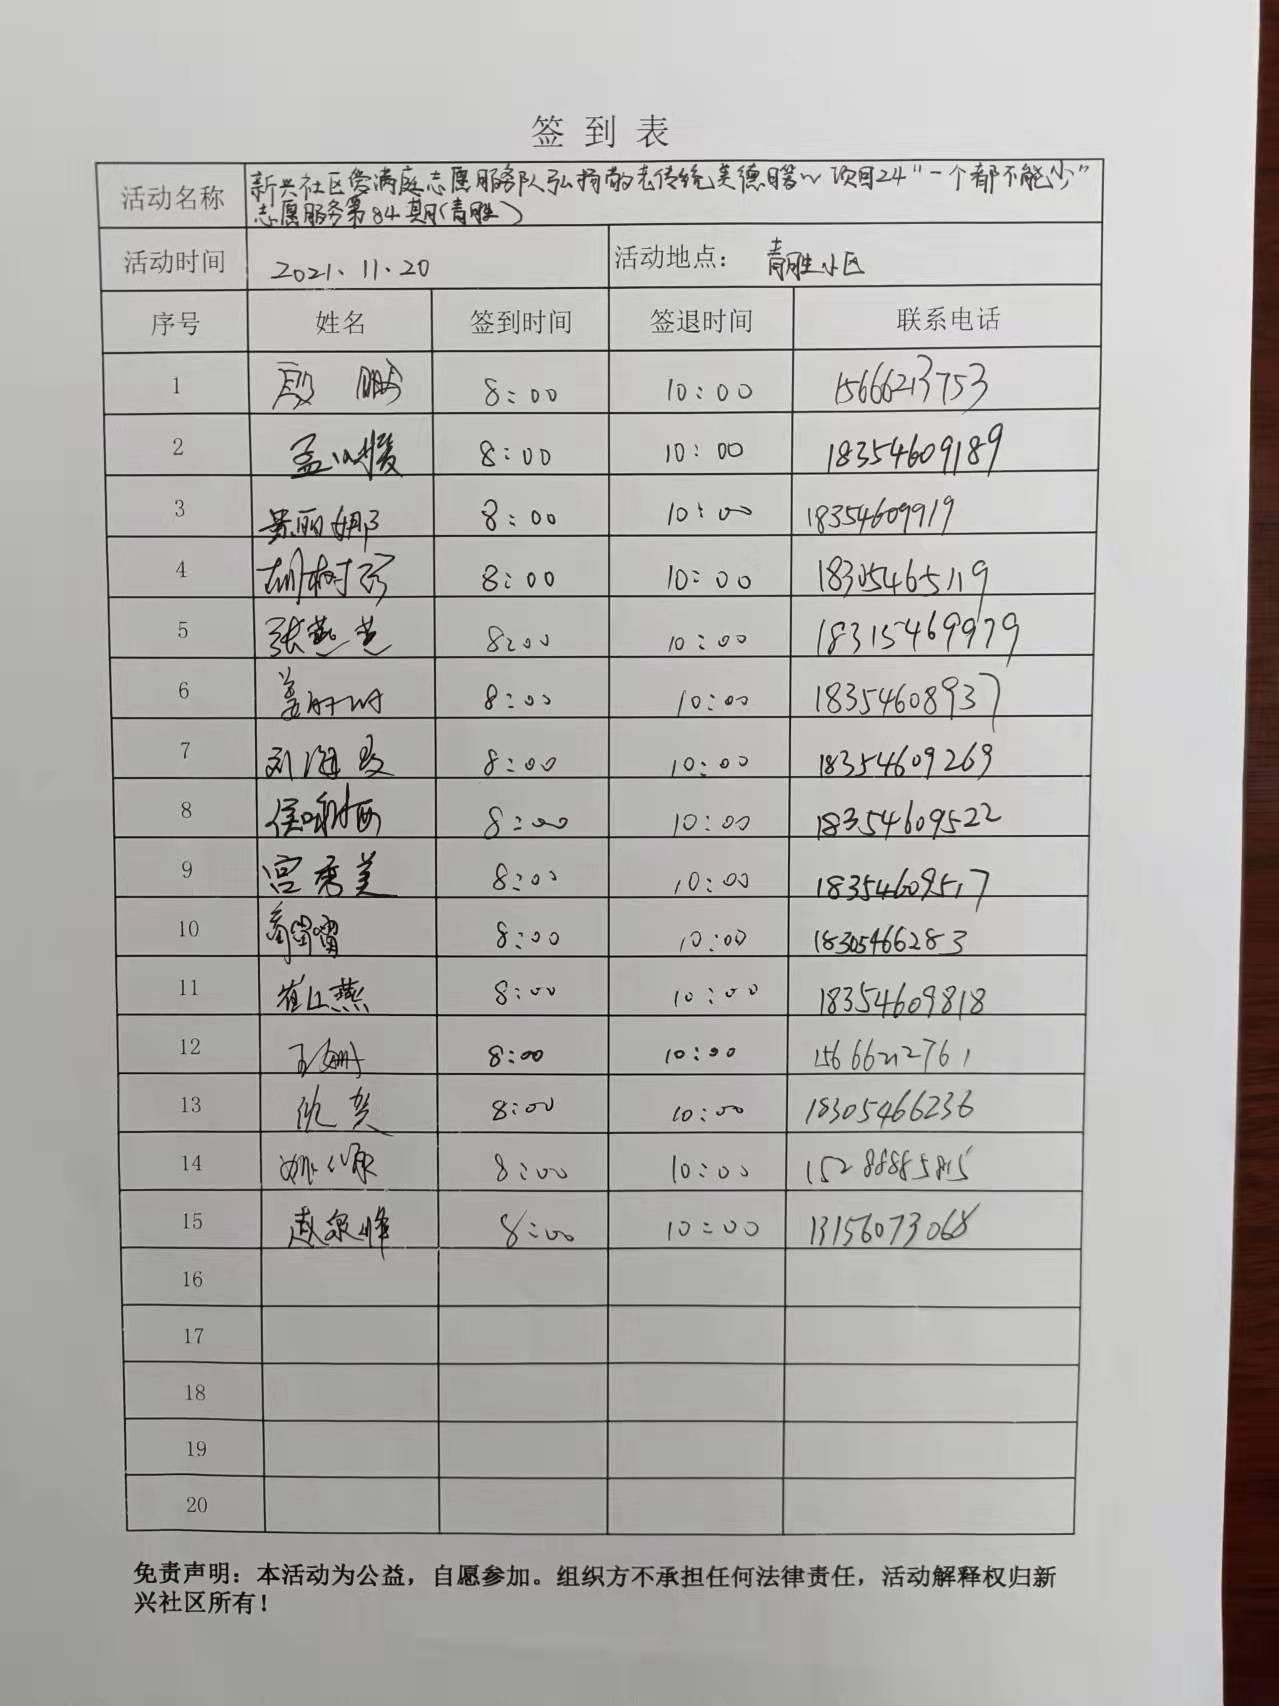 签到表
活动名称 新兴社区爱满庭志愿服务队弘扬敬老传统美德 项目24“一个都不能少”
志愿服务第84期(青胜)
活动时间 2021.11.20 活动地点: 青胜小区
序号 姓名 签到时间 签退时间 联系电话
1 殷鹏 8:00 10:00 15666213753
2 孟 8:00 10:00 18354609189
3 景丽娜 8:00 10:00 18354609919
4 胡树珍 8:00 10:00 18305465119
5 张燕芝 8:00 10:00 18315469979
6 姜 8:00 10:00 18354608937
7 刘海 8:00 10:00 18354609269
8 侯 8:00 10:00 18354609522
9 宫秀美 8:00 10:00 18354609517
10 8:00 10:00 18305466283
11 崔江燕 8:00 10:00 18354609818
12 王姗 8:00 10:00 15666212761
13 仇贺 8:00 10:00 18305466236
14 姚 8:00 10:00 15288885815
15 赵泉峰 8:00 10:00 13156073068
16
17
18
19
20
免责声明:本活动为公益,自愿参加。组织方不承担任何法律责任,活动解释权归新
兴社区所有!